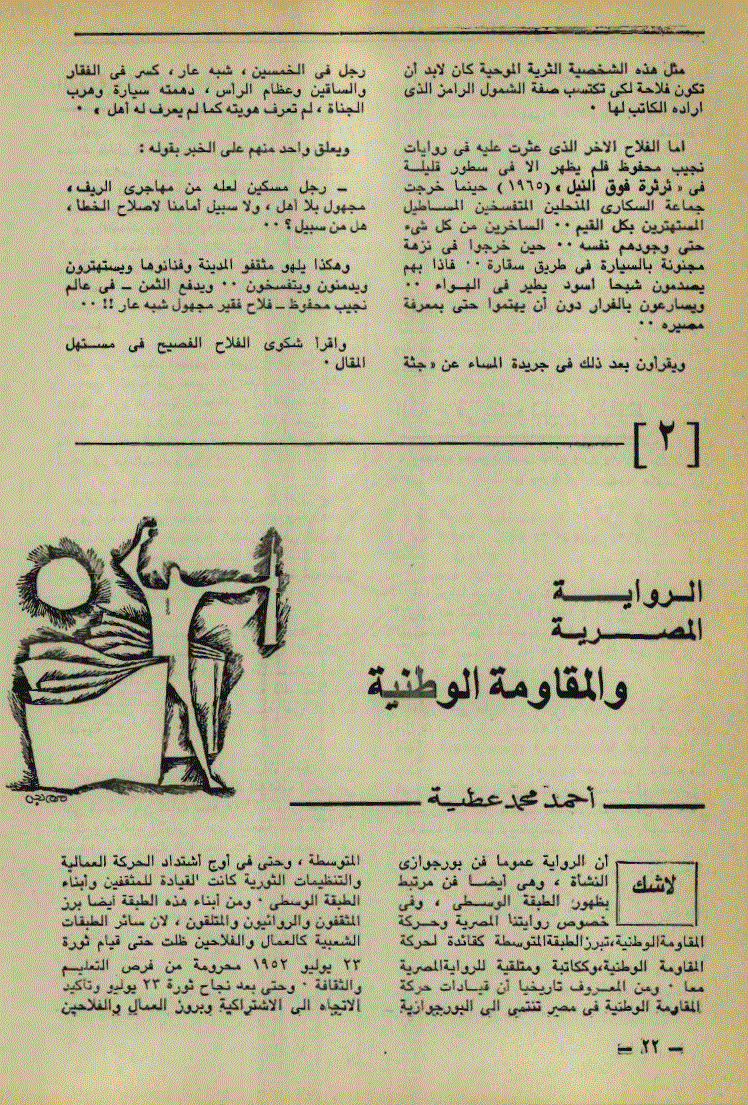 مثل هذه الشخصية الثرية الموحية كان لابد أن
تكون فلاحة لكى تكتسب صفة الشمول الرامز الذى
اراده الكاتب لها ٠
اما الفلاح الاخر الذى عثرت عليه فى روايات
نجيب محفوظ فلم يظهر الا فى سطور قليلة
فى « ثرثرة فوق النيل » (١٩٦٥) حينما خرجت
جماعة السكارى المنحلين المتفسخين المساطيل
المستهترين بكل القيم ٠٠ الساخرين من كل شىء
حتى وجودهم نفسه ٠٠ حين خرجوا فى نزهة
مجنونة بالسيارة فى طريق سقارة ٠٠ فاذا بهم
يصدمون شبحا أسود يطير فى الهواء ٠٠
ويسارعون بالفرار دون أن يهتموا حتى بمعرفة
مصيره ٠٠
ويقرأون بعد ذلك فى جريدة المساء عن « جثة
رجل فى الخمسين ، شبه عار ، كسر فى الفقار
والساقين وعظام الرأس ، دهمته سيارة وهرب
الجناة ، لم تعرف هويته كما لم يعرف له أهل » ٠
ويعلق واحد منهم على الخبر بقوله :
ــ رجل مسكين لعله من مهاجرى الريف ،
مجهول بلا أهل ، ولا سبيل أمامنا لاصلاح الخطأ ،
هل من سبيل ؟ ٠٠
وهكذا يلهو مثقفو المدينة وفنانوها ويستهترون
ويدمنون ويتفسخون ٠٠ ويدفع الثمن ــ فى عالم
نجيب محفوظ ــ فلاح فقير مجهول شبه عار !! ٠٠
واقرأ شكوى الفلاح الفصيح فى مستهل
المقال ٠
[ ٢ ]
الروايــة
المصـرية
والمقاومة الوطنية
أحمد محمد عطية
لاشك
أن الرواية عموما فن بورجوازى
النشأة ، وهى أيضا فن مرتبط
بظهور الطبقة الوسطى ، وفى
خصوص روايتنا المصرية وحركة
المقاومة الوطنية، تبرز الطبقة المتوسطة كقائدة لحركة
المقاومة الوطنية، وككاتبة ومتلقية للرواية المصرية
معا ٠ ومن المعروف تاريخيا أن قيادات حركة
المقاومة الوطنية فى مصر تنتمى الى البورجوازية
المتوسطة ، وحتى فى أوج أشتداد الحركة العمالية
والتنظيمات الثورية كانت القيادة للمثقفين وأبناء
الطبقة الوسطى ٠ ومن أبناء هذه الطبقة أيضا برز
المثقفون والروائيون والمتلقون ، لان سائر الطبقات
الشعبية كالعمال والفلاحين ظلت حتى قيام ثورة
٢٣ يوليو ١٩٥٢ محرومة من فرص التعليم
والثقافة ٠ وحتى بعد نجاح ثورة ٢٣ يوليو وتأكيد
الاتجاه الى الاشتراكية وبروز العمال والفلاحين
ــ ٢٢ ــ